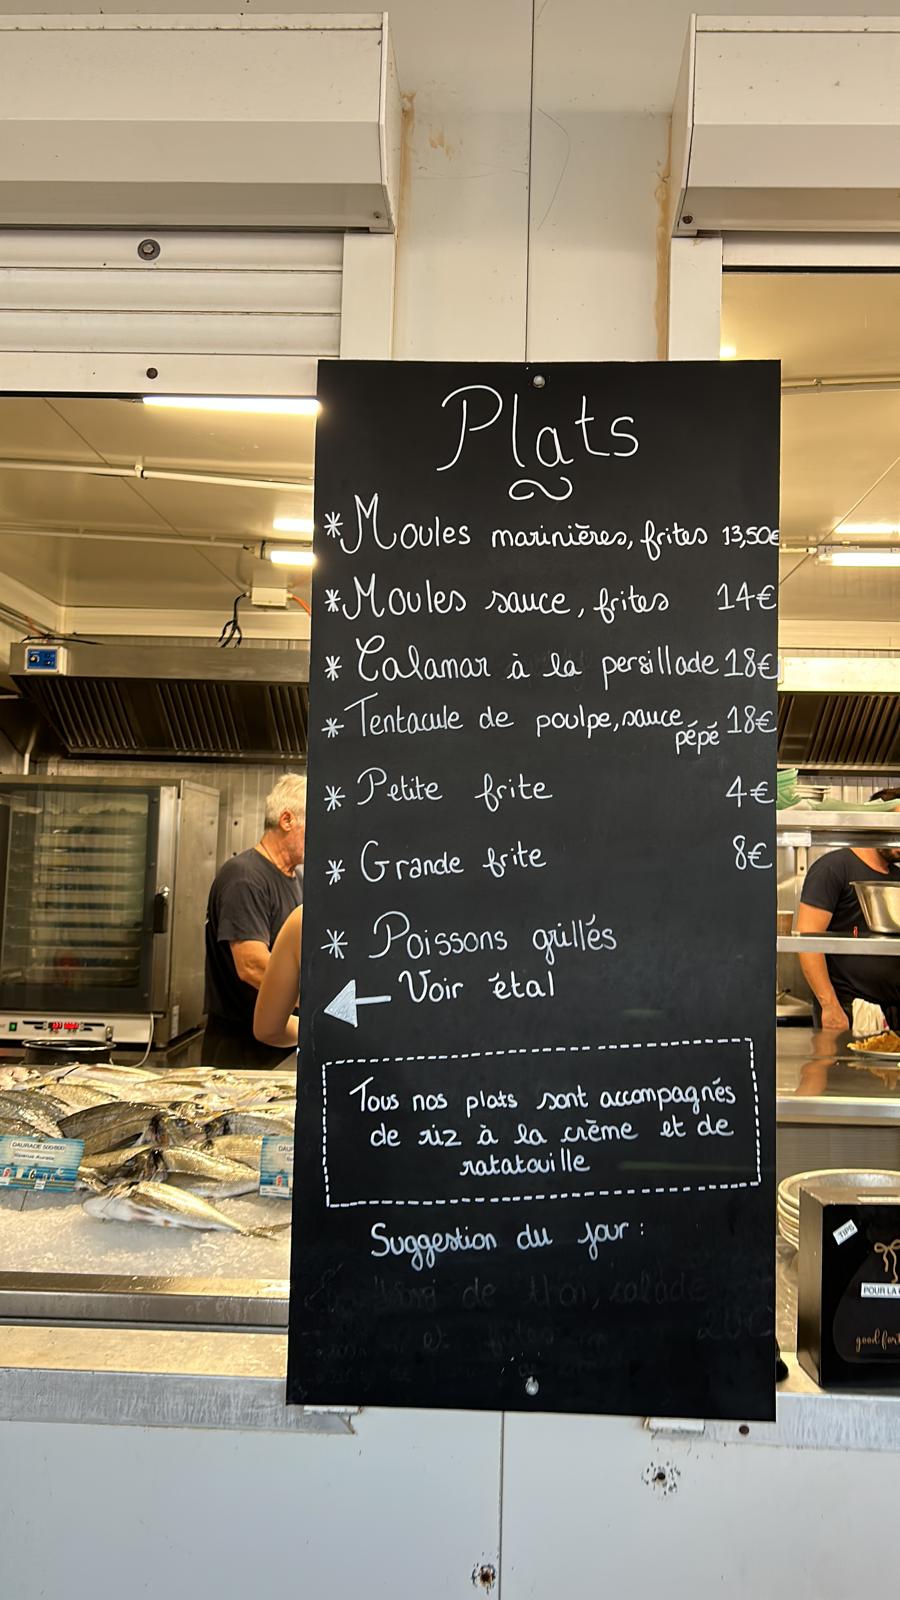 Plats
*Moules marinières, frites 13,50€
*Moules sauce, frites 14€
* Calamar à la persillade 18€
* Tentacule de poulpe, sauce pépé 18€
* Petite frite 4€
* Grande frite 8€
* Poissons grillés
Voir étal
Tous nos plats sont accompagnés
de riz à la crème et de
ratatouille
Suggestion du jour :
de thon, salade
et frites
DAURADE
TIPS
POUR LA